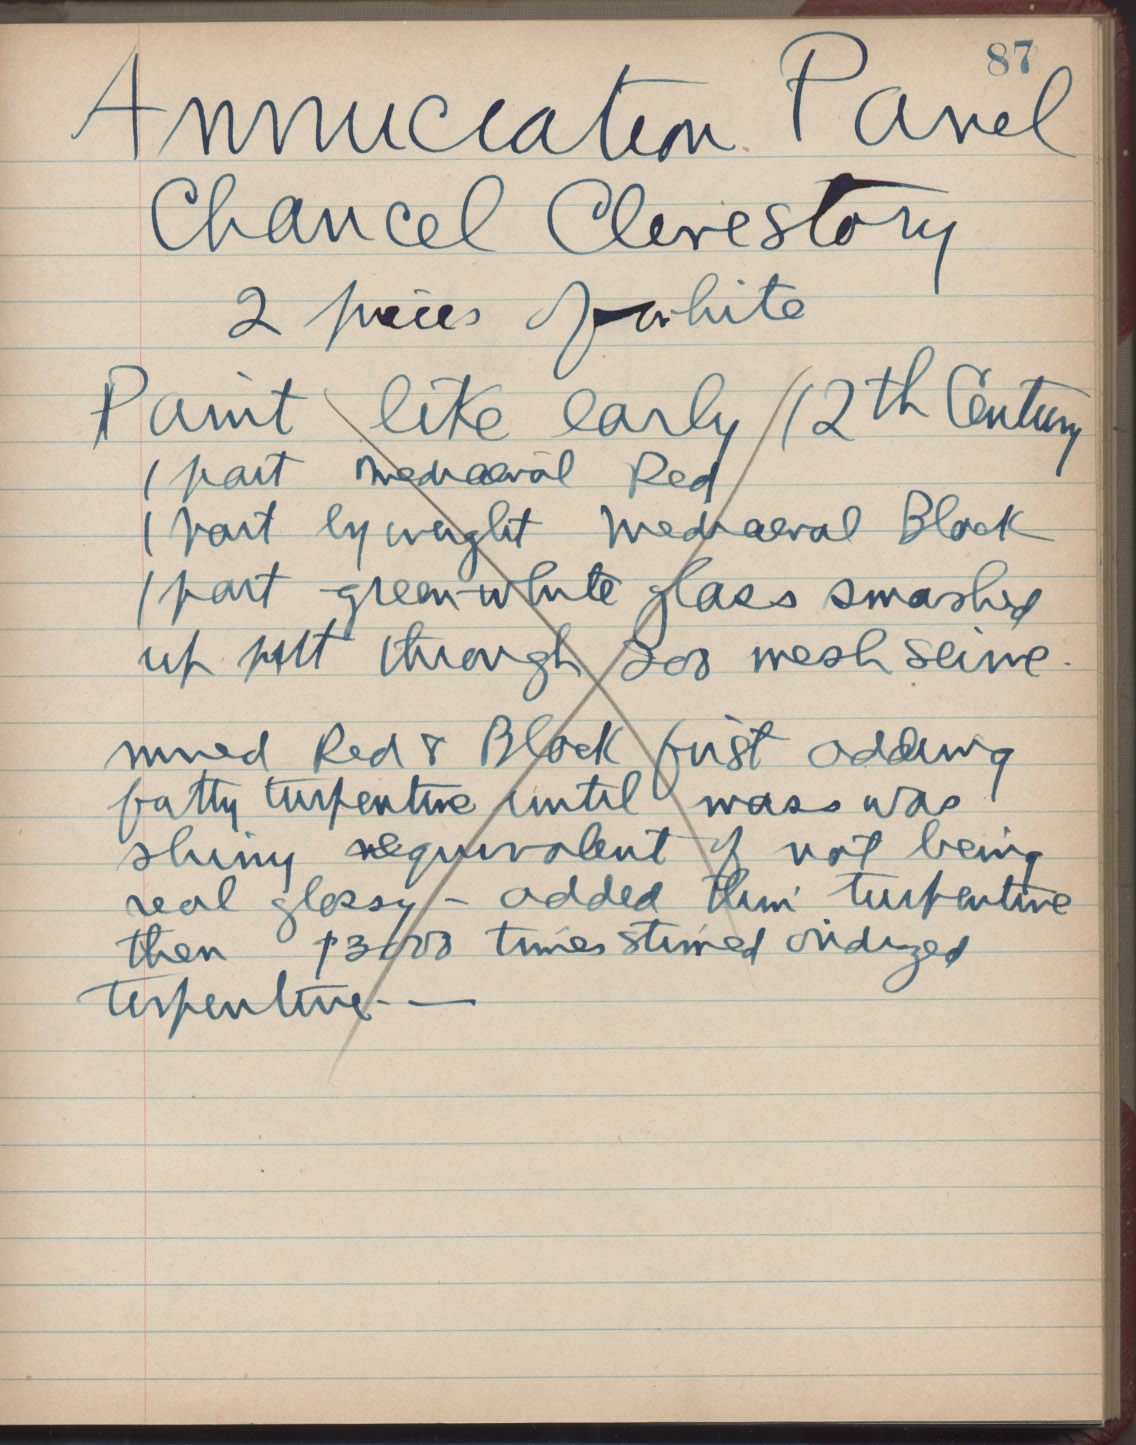 87
Annuciation Panel
Chancel Clerestory
2 pieces of white
Paint like early 12th Century
1 part mediaeval Red
1 part by weight Mediaeval Black
1 part green-white glass smashed
up put through 200 mesh seive.
mixed Red & Black first adding
fatty turpentine until mass was
shiny equivalent of not being
real glossy - added thin turpentine
then 3000 times stirred oxidized
terpentine - —